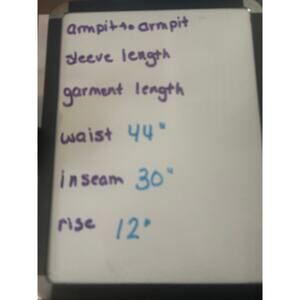 armpit to armpit
sleeve length
garment length
waist 44"
inseam 30"
rise 12"